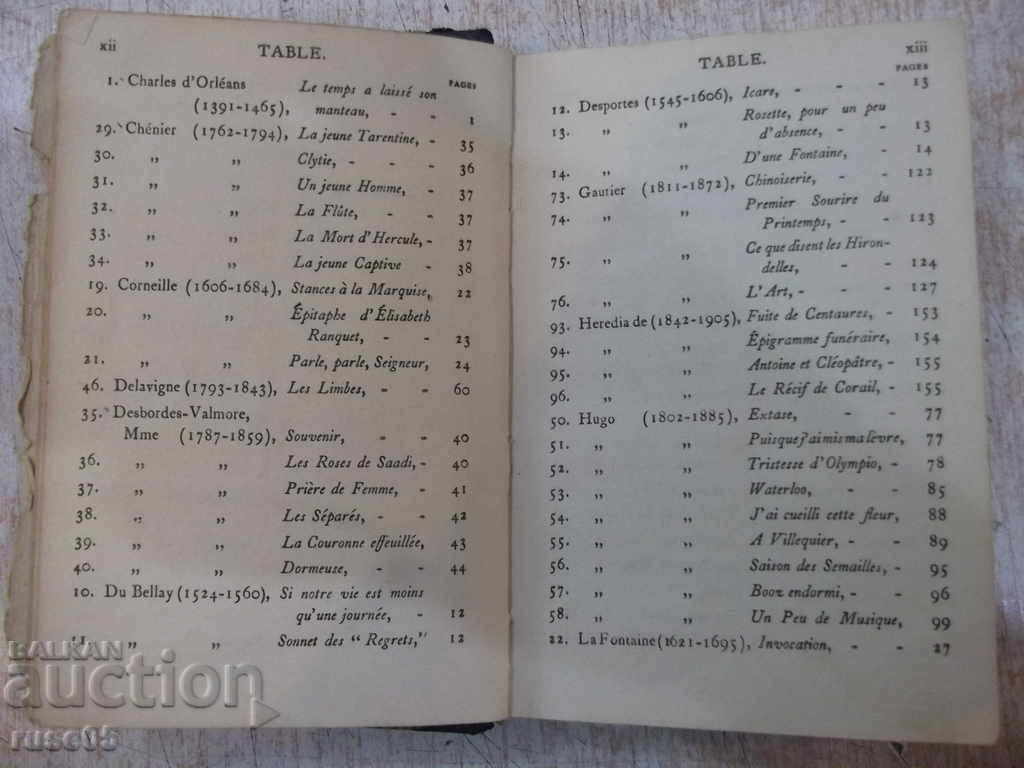 xii TABLE.
PAGES
1. Charles d'Orléans Le temps a laissé son
(1391-1465), manteau, - - 1
29. Chénier (1762-1794), La jeune Tarentine, - 35
30. „ „ Clytie, - - - 36
31. „ „ Un jeune Homme, - 37
32. „ „ La Flûte, - - 37
33. „ „ La Mort d'Hercule, - 37
34. „ „ La jeune Captive - 38
19. Corneille (1606-1684), Stances à la Marquise, 22
20. „ „ Épitaphe d'Élisabeth
Ranquet, - - 23
21. „ „ Parle, parle, Seigneur, 24
46. Delavigne (1793-1843), Les Limbes, - - 60
35. Desbordes-Valmore,
Mme (1787-1859), Souvenir, - - 40
36. „ „ Les Roses de Saadi, - 40
37. „ „ Prière de Femme, - 41
38. „ „ Les Séparés, - - 42
39. „ „ La Couronne effeuillée, 43
40. „ „ Dormeuse, - - 44
10. Du Bellay (1524-1560), Si notre vie est moins
qu'une journée, - 12
11. „ „ Sonnet des "Regrets," 12
TABLE. xiii
PAGES
12. Desportes (1545-1606), Icare, - - - 13
13. „ „ Rosette, pour un peu
d'absence, - - 13
14. „ „ D'une Fontaine, - 14
73. Gautier (1811-1872), Chinoiserie, - - 122
74. „ „ Premier Sourire du
Printemps, - - 123
75. „ „ Ce que disent les Hiron-
delles, - - 124
76. „ „ L'Art, - - - 127
93. Heredia de (1842-1905), Fuite de Centaures, - 153
94. „ „ Épigramme funéraire, 154
95. „ „ Antoine et Cléopâtre, - 155
96. „ „ Le Récif de Corail, - 155
50. Hugo (1802-1885), Extase, - - 77
51. „ „ Puisque j'ai mis ma lèvre, 77
52. „ „ Tristesse d'Olympio, - 78
53. „ „ Waterloo, - - 85
54. „ „ J'ai cueilli cette fleur, 88
55. „ „ A Villequier, - - 89
56. „ „ Saison des Semailles, - 95
57. „ „ Booz endormi, - - 96
58. „ „ Un Peu de Musique, 99
22. La Fontaine (1621-1695), Invocation, - - 27
BALKAN
auction
ruse05